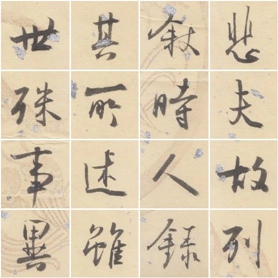 悲夫故列
敘時人錄
其所述雖
世殊事異